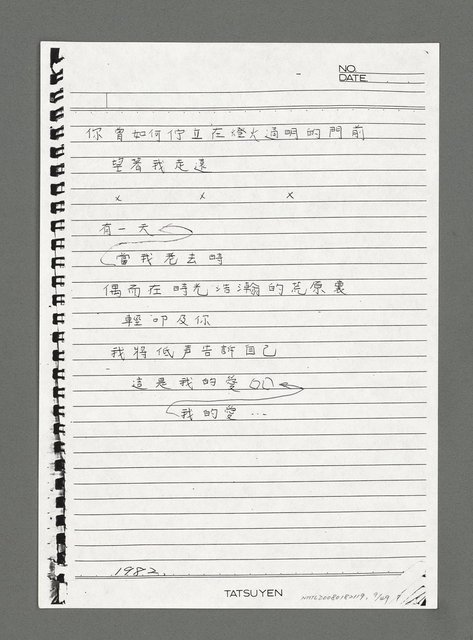 NO.
DATE
你曾如何佇立在燈火通明的門前
望著我走遠
x x x
有一天
當我老去時
偶而在時光浩瀚的荒原裏
輕叩及你
我將低声告訴自己
這是我的愛
我的愛…
1982.
TATSUYEN